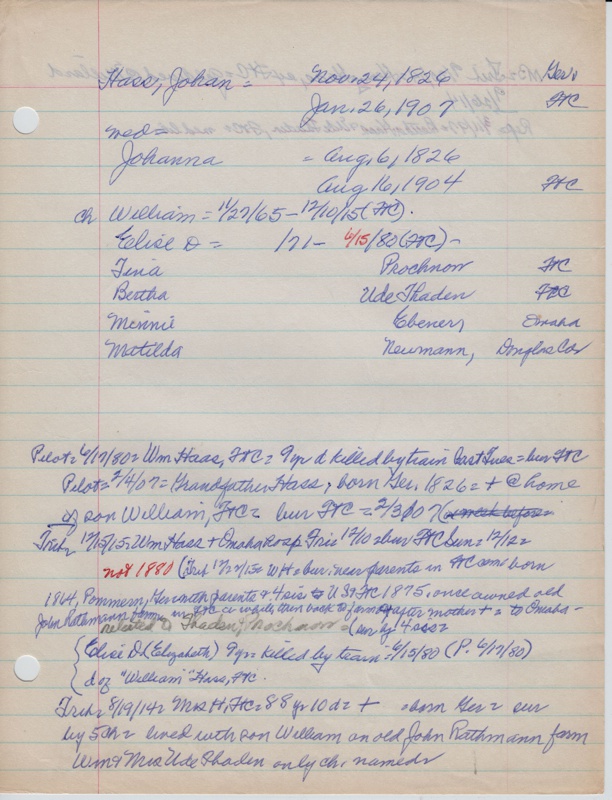 Hass, Johan = Nov. 24, 1826 Ger.
Jan. 26, 1907 FtC
med =
Johanna = Aug, 6, 1826
Aug 16, 1904 FtC
ch William = 11/27/65 - 12/10/15 (FtC).
Elise D = /71 - 6/15/80 (FtC) -
Tina Prochnow FtC
Bertha Ude Thaden FtC
Minnie Ebener, Omaha
Matilda Neumann, Douglas Co
Pilot = 6/17/80 = Wm Haas, FtC = 9 yr d killed by train last Tues = bur FtC
Pilot = 2/4/07 = Grandfather Hass, born Ger. 1826 = + @ home
of son William, FtC = bur FtC = 2/3/07
Trib = Wm Hass + Omaha hosp Fri = 12/10 = bur FtC Sun = 12/12 =
not 1880 (Trib 12/17/15 = WH = bur. near parents in FtC cem born
1864, Pommern, Ger with parents & 4 sis to US FtC 1875, once owned old
John Rathmann farm in FtC a while then back to farm after mother + = to Omaha -
related to Thaden, Prochnow = (sur by 4 sss =
Elise D (Elizabeth) 9 yr = killed by train = 6/15/80 (P. 6/17/80)
d of "William" Hass, FtC.
Trib = 8/19/14 = Mrs H, FtC = 88 yr 10 d = + = born Ger = sur
by 5 ch = lived with son William on old John Rathmann farm
Wm & Mrs Ude Thaden only ch. named =